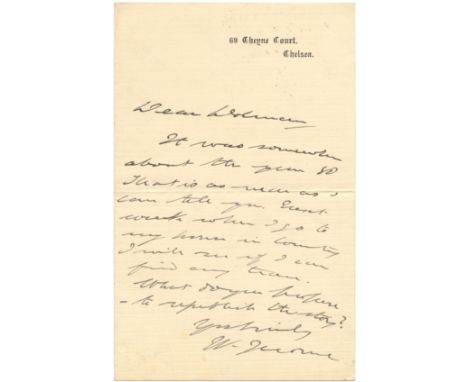 68 Cheyne Court,
Chelsea.
Dear
It was somewhere
about the year 80
That is as near as I
can tell you. Next
week when I go to
my house in Country
I will see if I can
find any trace.
What do you propose
- to republish the story?
Yrs
Jerome